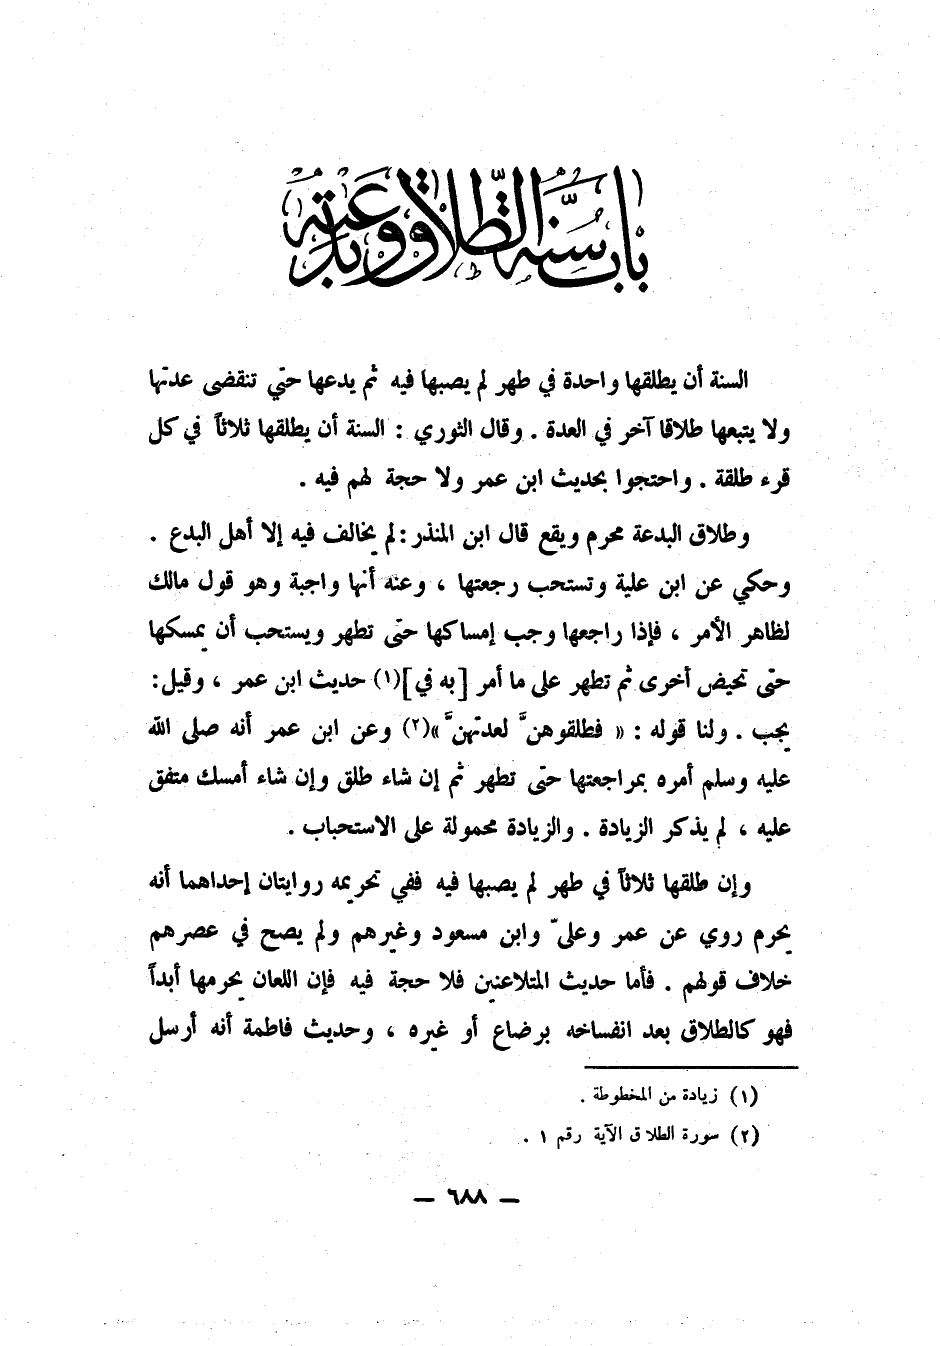 باب سنة الطلاق وبدعته
السنة أن يطلقها واحدة في طهر لم يصبها فيه ثم يدعها حتى تنقضي عدتها
ولا يتبعها طلاقا آخر في العدة . وقال الثوري : السنة أن يطلقها ثلاثاً في كل
قرء طلقة . واحتجوا بحديث ابن عمر ولا حجة لهم فيه .
وطلاق البدعة محرم ويقع قال ابن المنذر : لم يخالف فيه إلا أهل البدع .
وحكي عن ابن علية وتستحب رجعتها ، وعنه أنها واجبة وهو قول مالك
لظاهر الأمر ، فإذا راجعها وجب إمساكها حتى تطهر ويستحب أن يمسكها
حتى تحيض أخرى ثم تطهر على ما أمر [به في](١) حديث ابن عمر ، وقيل :
يجب . ولنا قوله : « فطلقوهنَّ لعدتهنَّ »(٢) وعن ابن عمر أنه صلى الله
عليه وسلم أمره بمراجعتها حتى تطهر ثم إن شاء طلق وإن شاء أمسك متفق
عليه ، لم يذكر الزيادة . والزيادة محمولة على الاستحباب .
وإن طلقها ثلاثاً في طهر لم يصبها فيه ففي تحريمه روايتان إحداهما أنه
يحرم روي عن عمر وعليّ وابن مسعود وغيرهم ولم يصح في عصرهم
خلاف قولهم . فأما حديث المتلاعنين فلا حجة فيه فإن اللعان يحرمها أبداً
فهو كالطلاق بعد انفساخه برضاع أو غيره ، وحديث فاطمة أنه أرسل
(١) زيادة من المخطوطة .
(٢) سورة الطلاق الآية رقم ١ .
— ٦٨٨ —